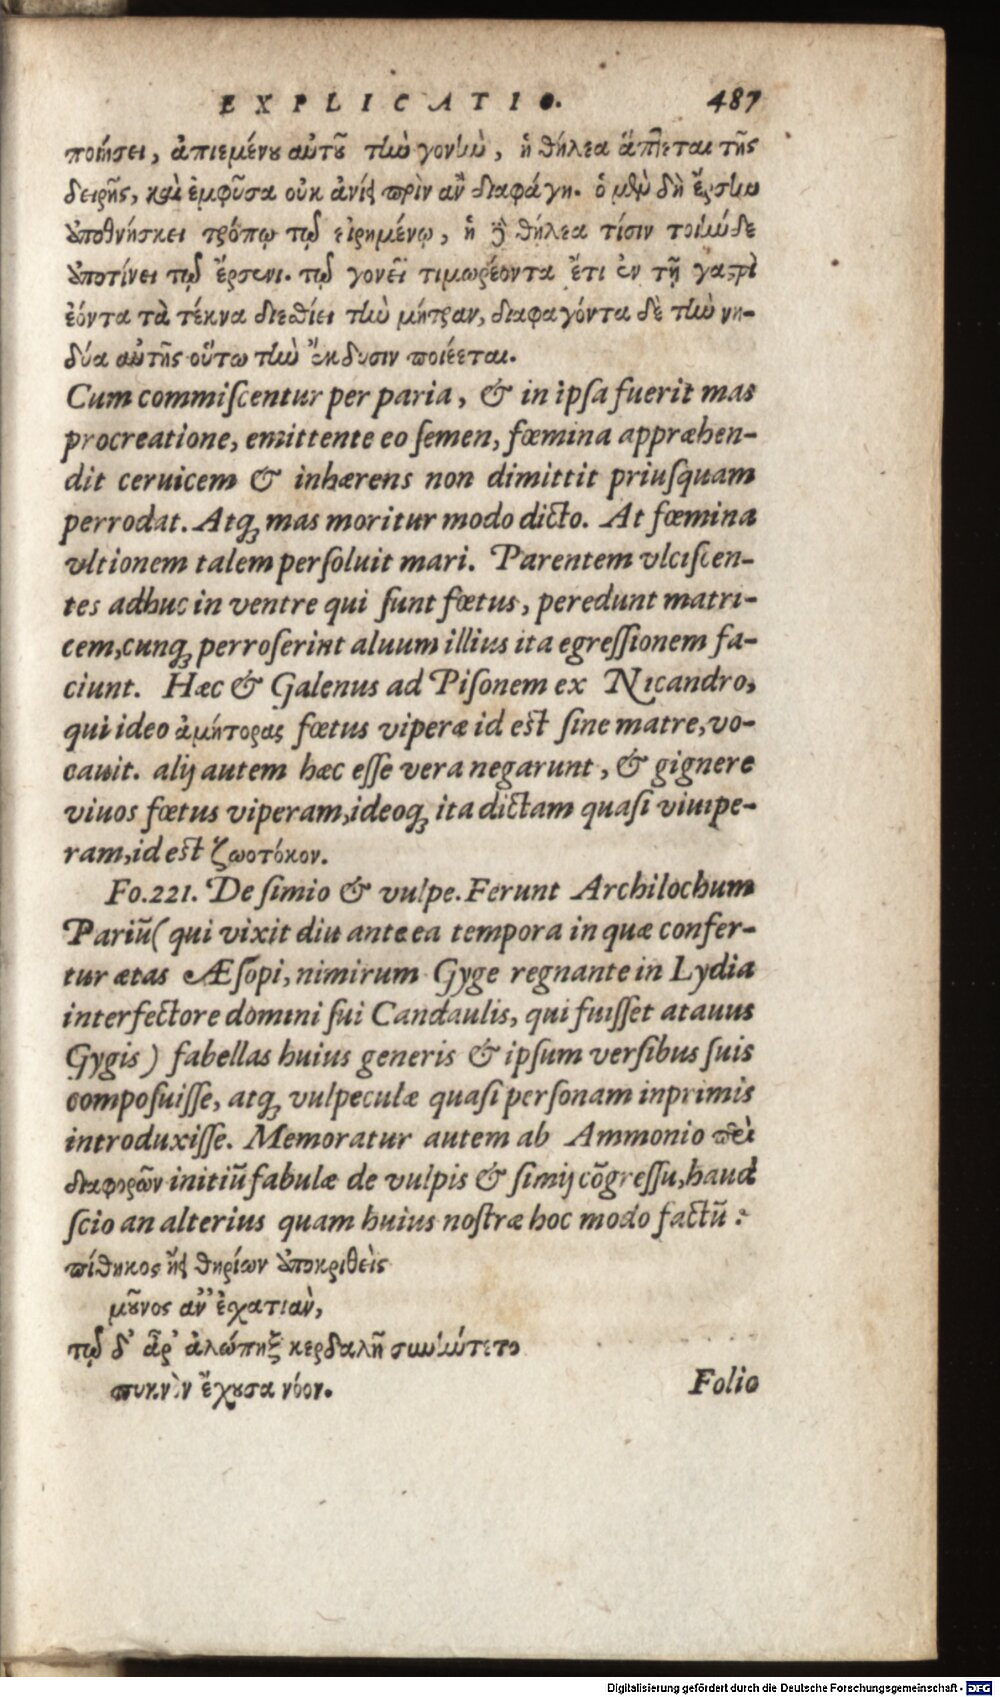 EXPLICATIO. 487
ποιήσει, ἀπιεμένου αὐτοῦ τὴν γονὴν, ἡ θήλεα ἅπτεται τῆς
δειρῆς, καὶ ἐμφῦσα οὐκ ἀνίει πρὶν ἂν διαφάγῃ. ὁ μὲν δὴ ἔρσην
ἀποθνήσκει τρόπῳ τῷ εἰρημένῳ, ἡ δὲ θήλεα τίσιν τοιήνδε
ἀποτίνει τῷ ἔρσενι. τῷ γονέϊ τιμωρέοντα ἔτι ἐν τῇ γαστρὶ
ἐόντα τὰ τέκνα διεσθίει τὴν μήτραν, διαφαγόντα δὲ τὴν νη-
δύα αὐτῆς οὕτω τὴν ἔκδυσιν ποιέεται.
Cum commiſcentur per paria, & in ipſa fuerit mas
procreatione, emittente eo ſemen, fœmina appræhen-
dit ceruicem & inhærens non dimittit priuſquam
perrodat. Atq; mas moritur modo dicto. At fœmina
vltionem talem perſoluit mari. Parentem vlciſcen-
tes adhuc in ventre qui ſunt fœtus, peredunt matri-
cem,cunq; perroſerint aluum illius ita egreſſionem fa-
ciunt. Hæc & Galenus ad Piſonem ex Nicandro,
qui ideo ἀμήτορας fœtus viperæ id est ſine matre, vo-
cauit. alij autem hæc eſſe vera negarunt, & gignere
viuos fœtus viperam,ideoq; ita dictam quaſi viuipe-
ram,id est ζωοτόκον.
Fo.221. De ſimio & vulpe. Ferunt Archilochum
Pariū( qui vixit diu ante ea tempora in quæ confer-
tur ætas Æſopi, nimirum Gyge regnante in Lydia
interfectore domini ſui Candaulis, qui fuiſſet atauus
Gygis) fabellas huius generis & ipſum verſibus ſuis
compoſuiſſe, atq; vulpeculæ quaſi perſonam inprimis
introduxiſſe. Memoratur autem ab Ammonio περὶ
διαφορῶν initiū fabulæ de vulpis & ſimij cōgreſſu,haud
ſcio an alterius quam huius noſtræ hoc modo factū:
πίθηκος ᾔει θηρίων ἀποκριθεὶς
μοῦνος ἀν' ἐσχατιὰν,
τῷ δ' ἆρ' ἀλώπηξ κερδαλῆ συνήντετο
πυκνὸν ἔχουσα νόον.
Folio
Digitalisierung gefördert durch die Deutsche Forschungsgemeinschaft - DFG